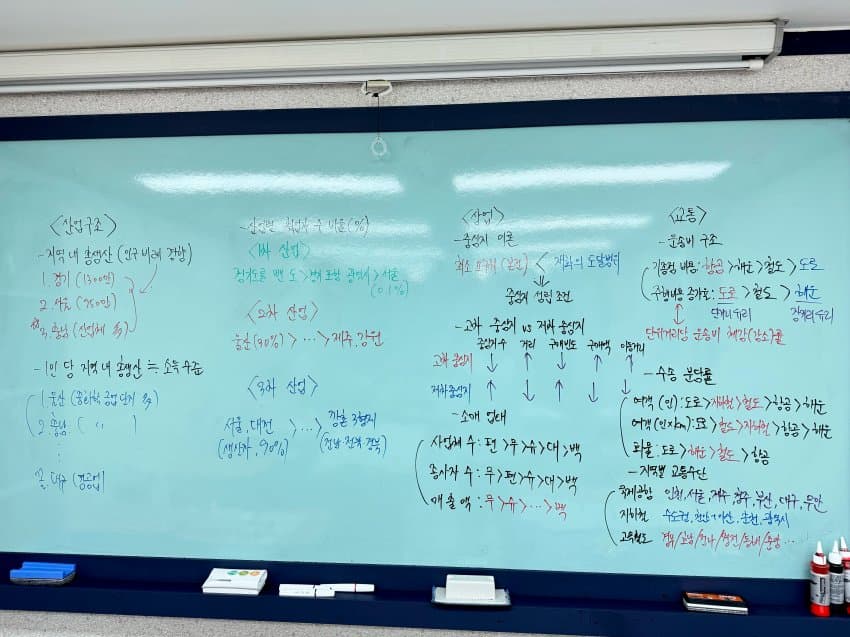 <산업구조>
-지역 내 총생산 (인구 비례 경향)
1. 경기 (1300만)
2. 서울 (950만)
3. 충남 (산업체 多)
-1인 당 지역 내 총생산 ≒ 소득수준
1. 울산 (중화학 공업 단지 多)
2. 충남 ( 〃 )
꼴. 대구 (경공업)
-산업별 취업자 수 비율(%)
<1차 산업>
경기도를 뺀 도 > 경기 포함 광역시 > 서울 (0.1%)
<2차 산업>
울산(30%) > … > 제주, 강원
<3차 산업>
서울, 대전 > … >
(생산자, 90%) (전남·전북·경북)
<산업>
-중심지 이론
최소 요구치 (본인) < 재화의 도달범위
중심지 성립 조건
-고차 중심지 vs 저차 중심지
중심지 수 거리 구매빈도 이동거리
고차 중심지 ↓ ↑ ↓ ↑ ↑
저차 중심지 ↑ ↓ ↑ ↓ ↓
-소매 업태
사업체 수 : 편 > 무 > 슈 > 대 > 백
종사자 수 : 무 > 편 > 슈 > 대 > 백
매출액 : 무 > 슈 > … > 백
<교통>
-운송비 구조
기종점 비용 : 항공 > 해운 > 철도 > 도로
주행비용 증가율 : 도로 > 철도 > 해운
단거리 유리 장거리 유리
단위거리당 운송비 체감(감소)률
-수송 분담률
여객 (인) : 도로 > 지하철 > 철도 > 항공 > 해운
여객 (인×km) : 도로 > 철도 > 지하철 > 항공 > 해운
화물 : 도로 > 해운 > 철도 > 항공
-지역별 교통수단
국제공항 인천, 서울, 제주, 청주, 부산, 대구, 무안
지하철 수도권, 천안·아산, 춘천, 광역시
고속철도 경부/호남/전라/경전/동해/중앙 …